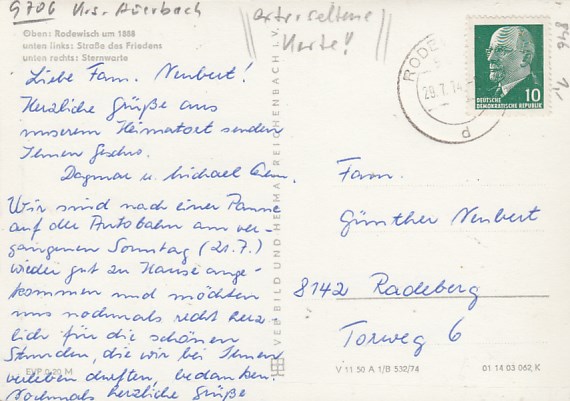 9706 Krs. Auerbach
äußerst seltene
Karte!
846
1,-
Oben: Rodewisch um 1888
unten links: Straße des Friedens
unten rechts: Sternwarte
Liebe Fam. Neubert!
Herzliche Grüße aus
unserem Heimatort senden
Ihnen
Dagmar u. Michael
Wir sind nach einer Panne
auf der Autobahn am ver-
gangenen Sonntag (21.7.)
wieder gut zu Hause ange-
kommen und möchten
uns nochmals recht herz-
lich für die schönen
Stunden, die wir bei Ihnen
verleben durften, bedanken.
Nochmals herzliche Grüße
EVP 0,20 M
VEB BILD UND HEIMAT REICHENBACH I. V.
RODE
29.7.74
d
10
DEUTSCHE
DEMOKRATISCHE REPUBLIK
Fam.
Günther Neubert
8142 Radeberg
Torweg 6
V 11 50 A 1/B 532/74
01 14 03 062 K